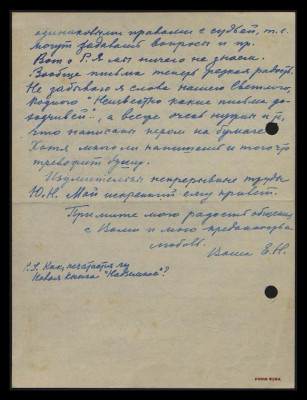 одинаковыми правами с судьей, т.е.
могут задавать вопросы и пр.
Вот о Р.Я мы ничего не знаем.
Вообще письма теперь редкая радость.
Не забываю я слова нашего Светлого,
родного "Неизвестно какие письма до-
ходчивей", а всегда очень нужно и то,
что написано пером на бумаге.
Хотя много ли напишешь и того что
тревожит душу.
Изумительны непрерывные труды
Ю.Н. Мой искренний ему привет.
Примите мою радость общения
с Вами и мою преданность и
любовь.
Ваша Е.Н.
P.S. Как, печатается ли
Новая книга "Надземное"?